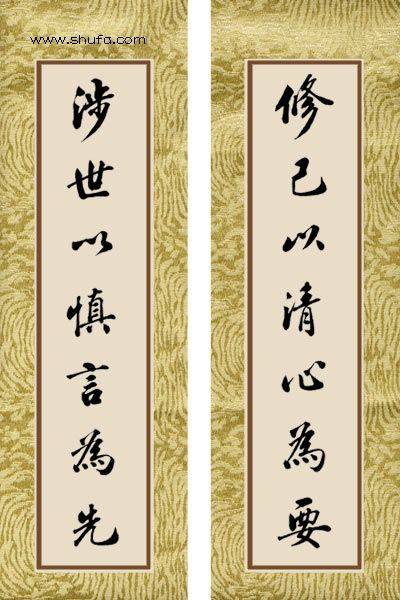 www.shufa.com
修己以清心為要
涉世以慎言為先